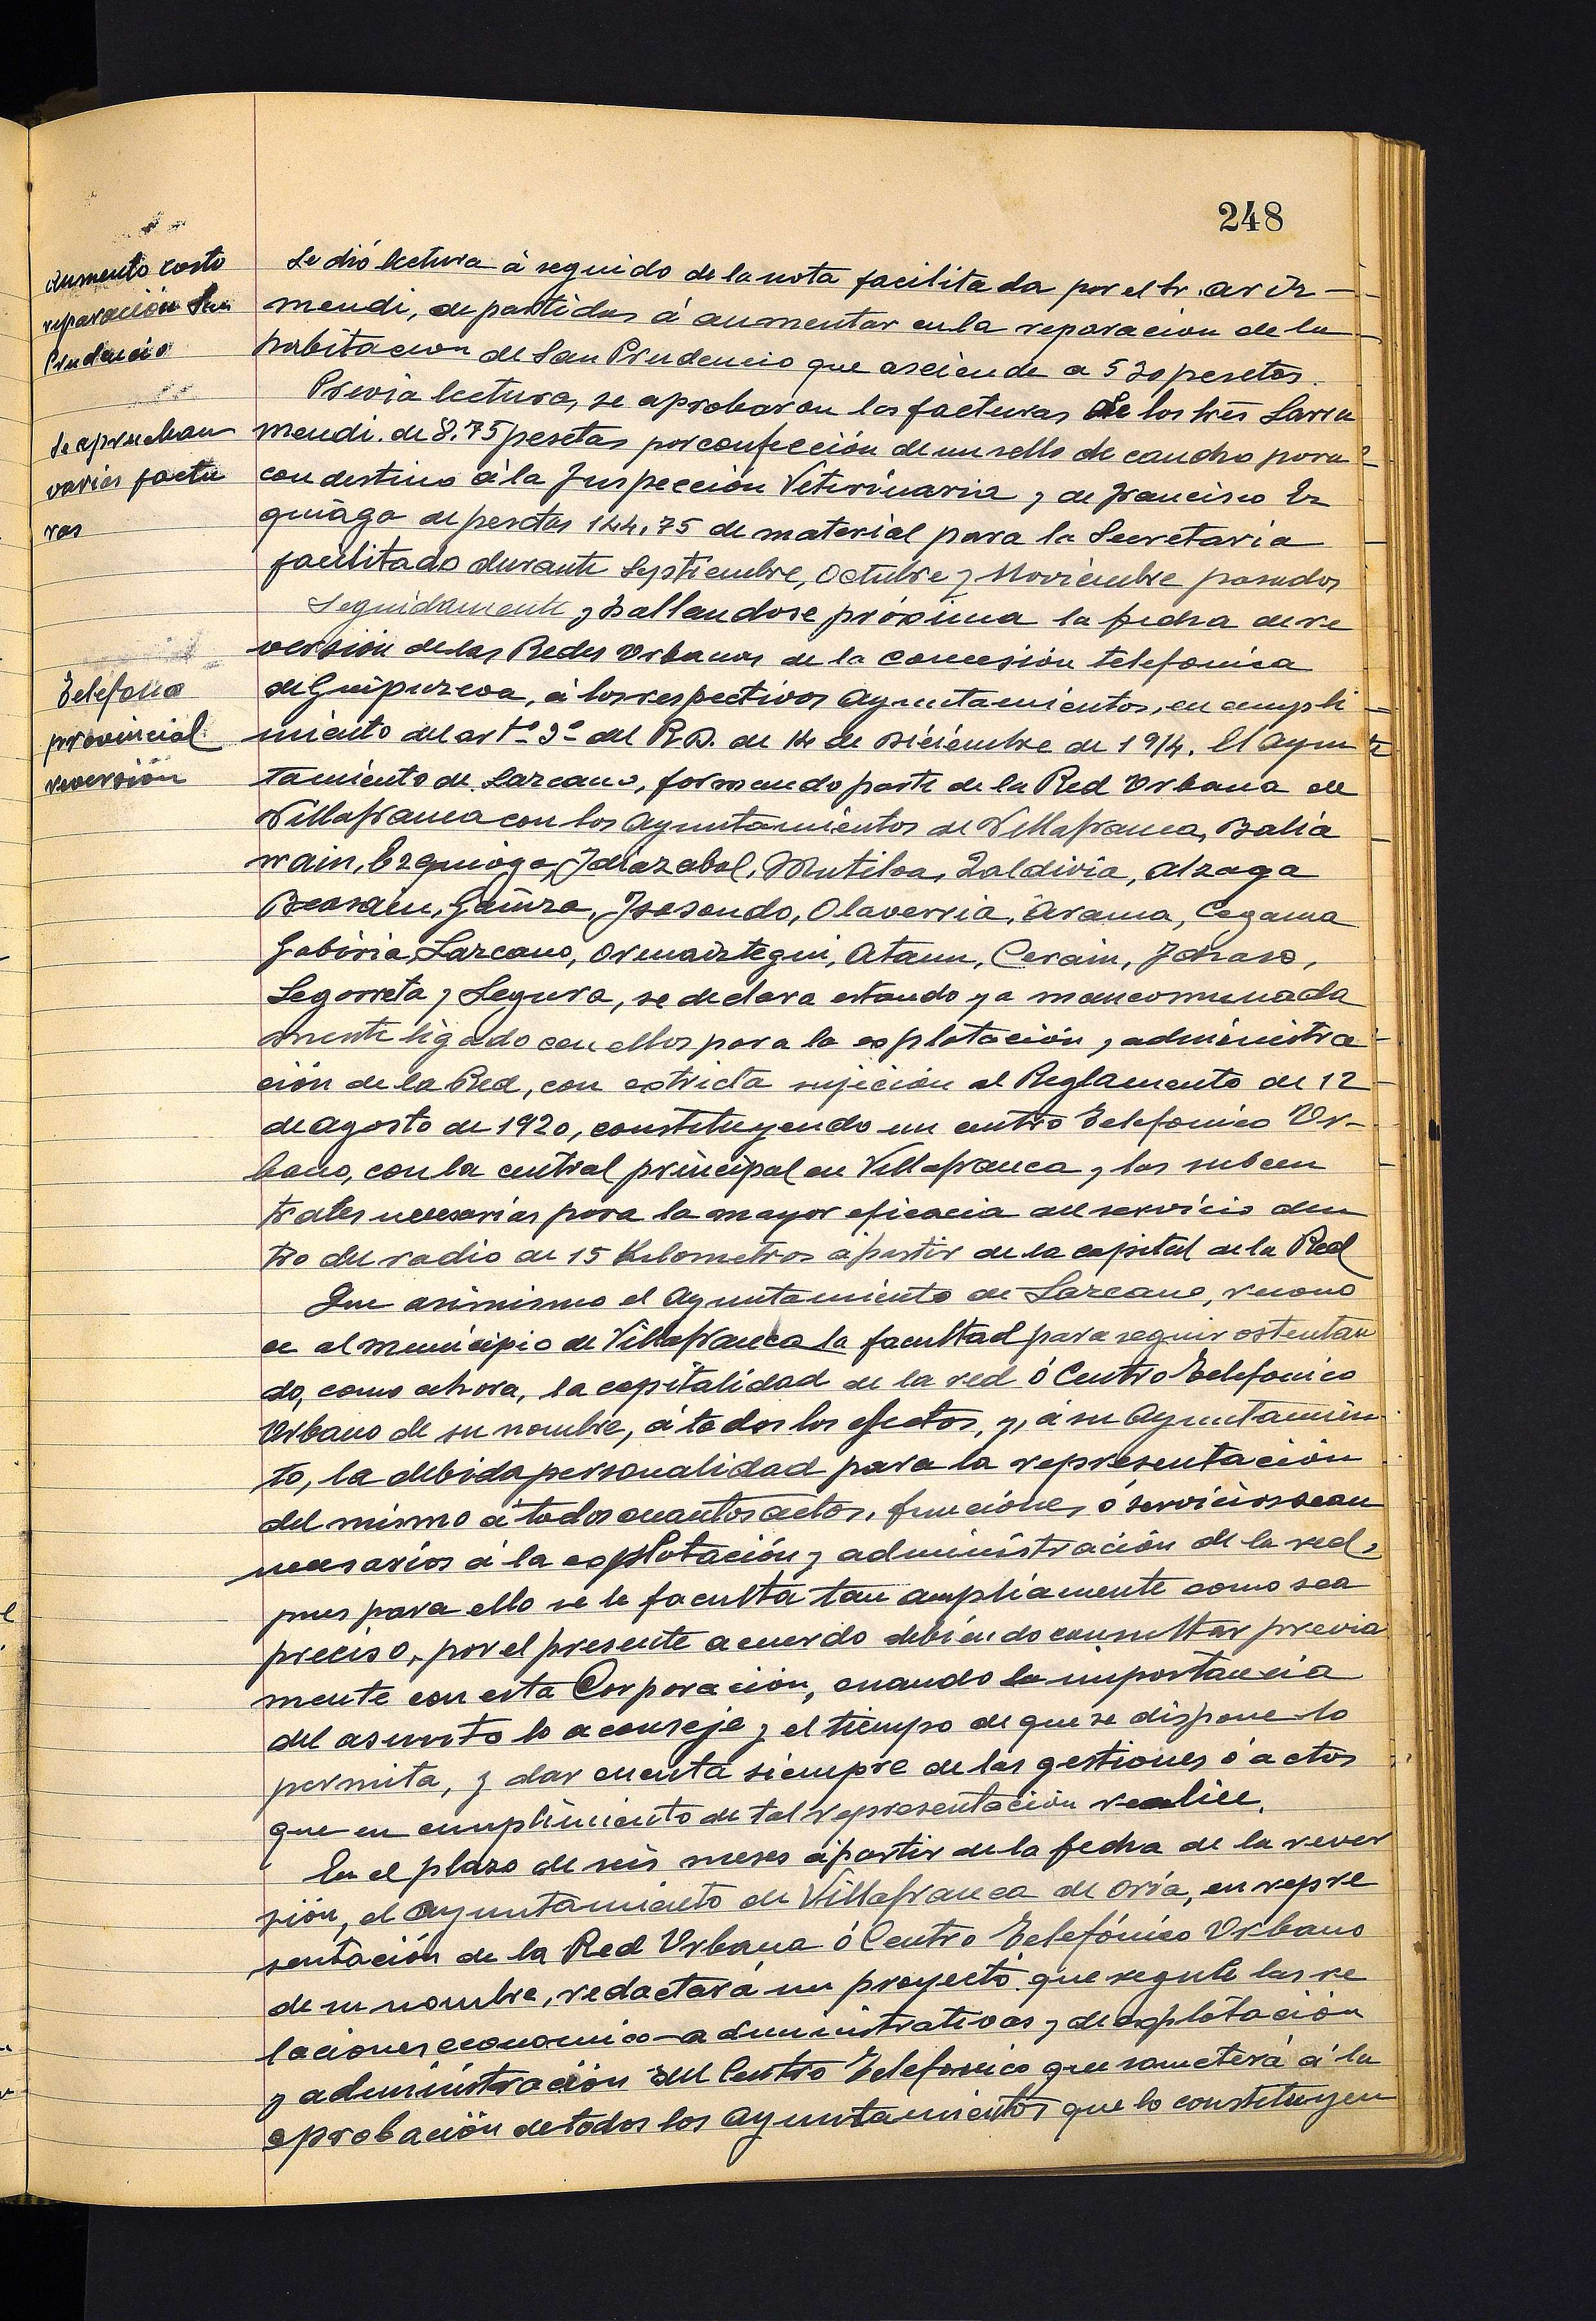 248
Aumento costo
reparación San
Prudencio
Se dió lectura á seguido de la nota facilitada por el Sr. Ariz-
mendi, de partidas á aumentar en la reparación de la
habitacion de San Prudencio que asciende a 530 pesetas.
Se aprueban
varias factu
ras
Previa lectura, se aprobaron las facturas de los Sres Larra
mendi. de 8.75 pesetas por confección de un sello de caucho para
con destino á la Inspección Veterinaria y de Francisco Ez
quiaga de pesetas 144,75 de material para la Secretaria
facilitado durante Septiembre, Octubre y Noviembre pasados
Telefono
provincial
reversión
Seguidamente y hallandose próxima la fecha de re
version de las Redes Urbanas de la concesión telefonica
de Guipuzcoa, á los respectivos Ayuntamientos, en cumpli
miento del artº 3º del R.D. de 14 de Diciembre de 1914. El Ayun
tamiento de Lazcano, formando parte de la Red Urbana de
Villafranca con los Ayuntamientos de Villafranca, Balia
rrain, Ezquioga, Idiazabal, Mutiloa, Zaldivia, Alzaga
Beasain, Gainza, Isasondo, Olaverria, Arama, Cegama
Gabiria, Lazcano, Ormaiztegui, Ataun, Cerain, Ichaso,
Legorreta y Segura, se declara estando ya mancomunada
mente ligado con ellos para la explotación y administra
ción de la Red, con estricta sujición al Reglamento de 12
de Agosto de 1920, constituyendo un centro Telefonico Ur-
bano, con la central principal en Villafranca y las subcen
trales necesarias para la mayor eficacia del servicio den
tro del radio de 15 Kilometros á partir de la capital de la Red
Que asimismo el Ayuntamiento de Lazcano, recono
ce al municipio de Villafranca la facultad para seguir ostentan
do, como ahora, la capitalidad de la red ó Centro Telefonico
Urbano de su nombre, á todos los efectos, y, á su Ayuntamien
to, la debida personalidad para la representación
del mismo á todos cuantos actos, funciones ó servicios sean
necesarios á la explotación y administración de la red,
pues para ello se le faculta tan ampliamente como sea
preciso, por el presente acuerdo debiendo consultar previa
mente con esta Corporación, cuando la importancia
del asunto lo aconseje y el tiempo de que se dispone lo
permita, y dar cuenta siempre de las gestiones ó actos
que en cumplimiento de tal representación realice.
En el plazo de seis meses á partir de la fecha de la rever
sión, el Ayuntamiento de Villafranca de Oria, en repre
sentación de la Red Urbana ó Centro Telefónico Urbano
de su nombre, redactará un proyecto que regule las re
laciones economico-administrativas y de explotación
y administración del Centro Telefonico que someterá á la
aprobación de todos los Ayuntamientos que lo constituyen